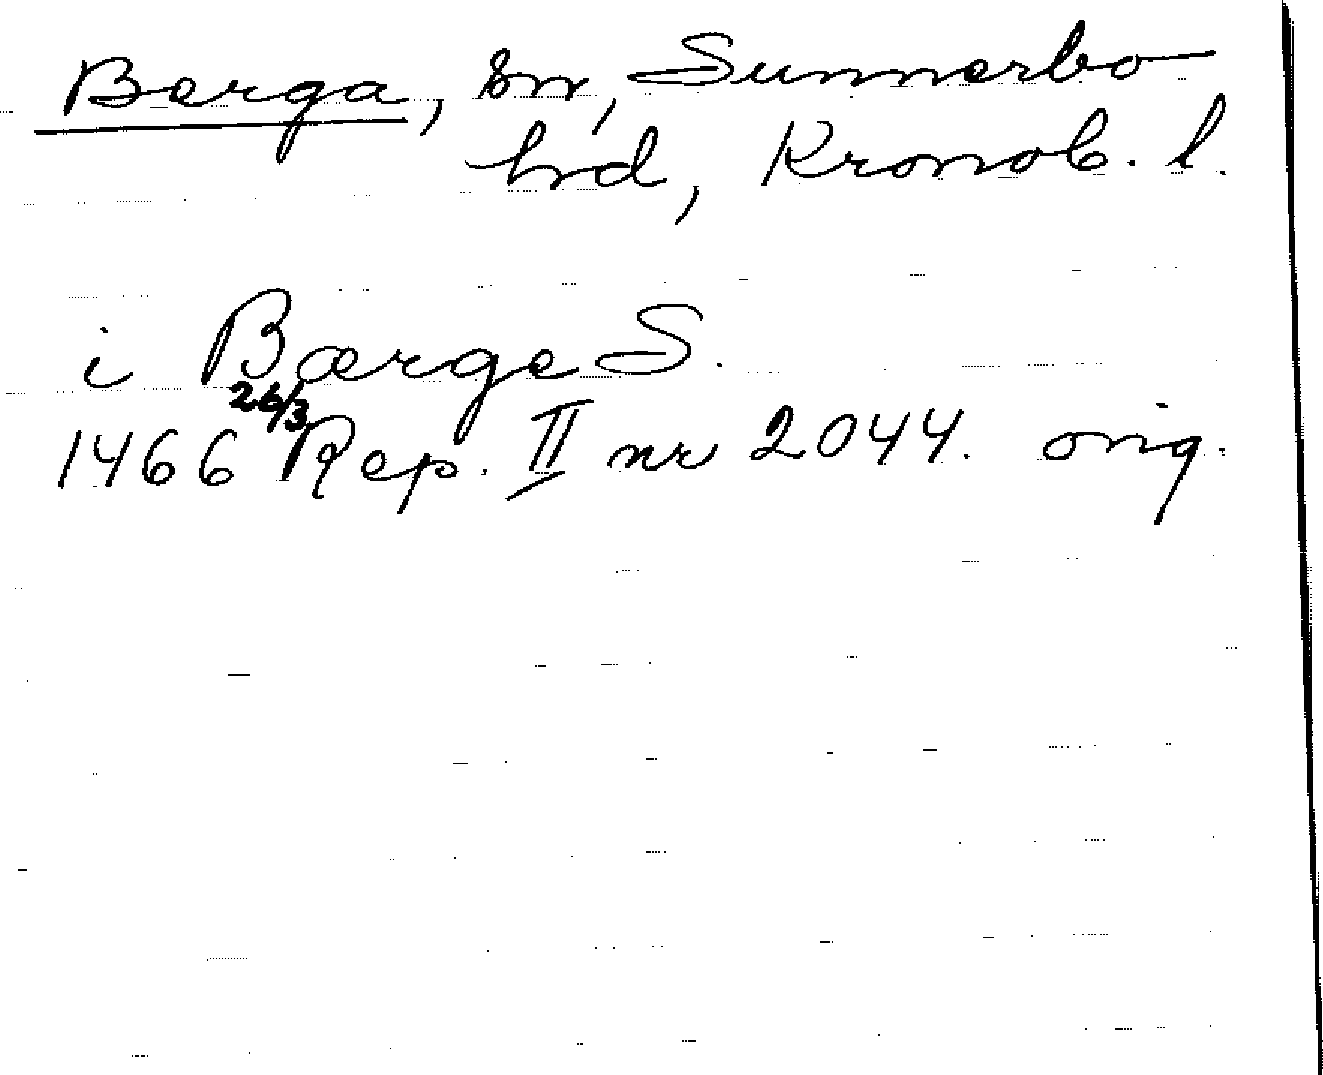 Berga, sn, Sunnerbo
hrd, Kronob. l.
i Bærge S.
1466 26/3 Rep. II nr 2044. orig.